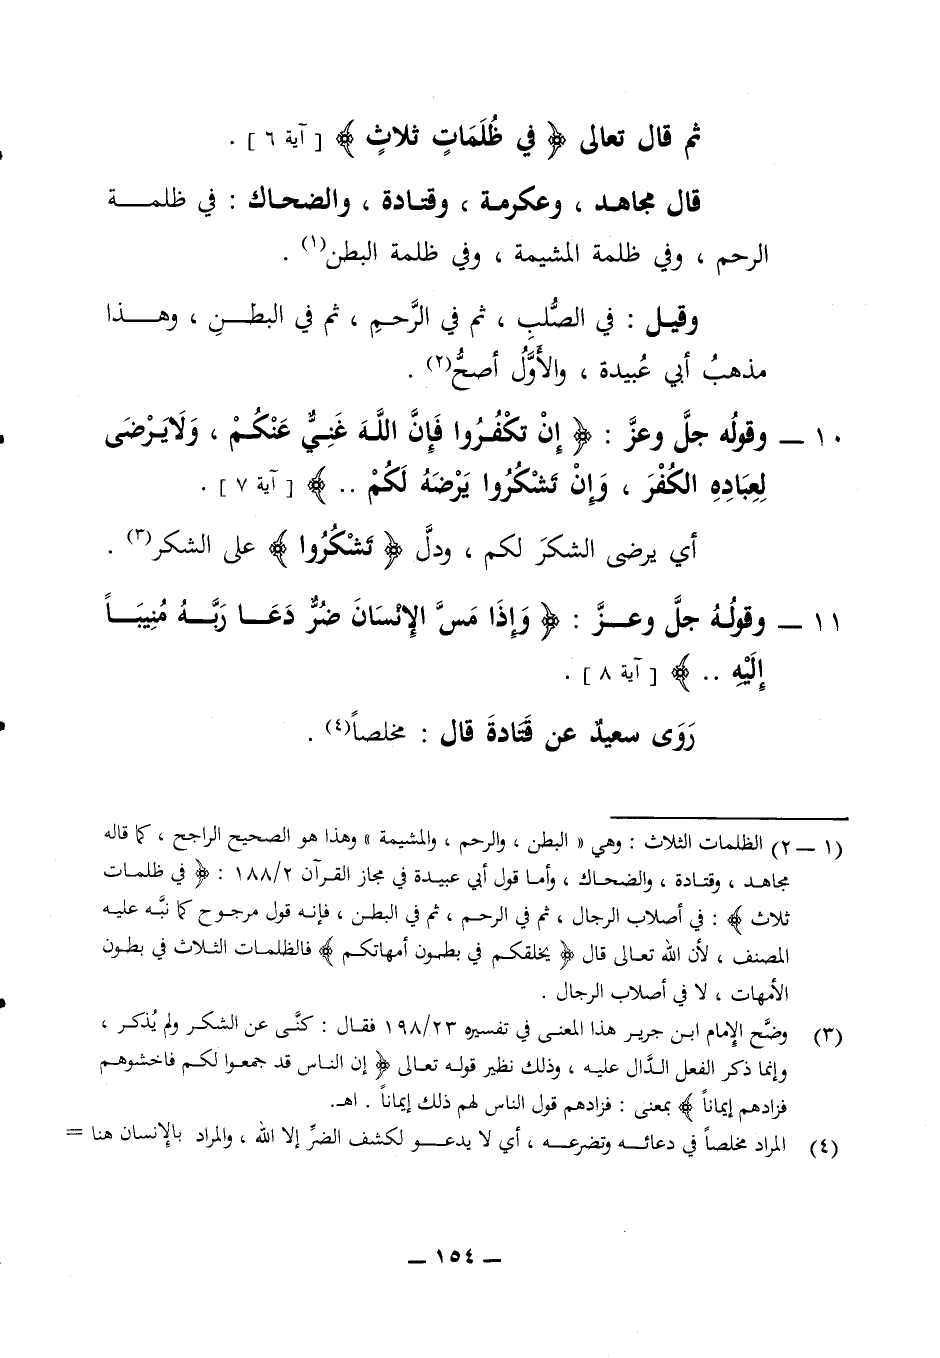 ثم قال تعالى ﴿ في ظُلَمَاتٍ ثلاثٍ ﴾ [ آية ٦ ] .
قال مجاهد ، وعكرمة ، وقتادة ، والضحاك : في ظلمة
الرحم ، وفي ظلمة المشيمة ، وفي ظلمة البطن(١) .
وقيل : في الصُّلبِ ، ثم في الرَّحمِ ، ثم في البطنِ ، وهذا
مذهبُ أبي عُبيدة ، والأوَّلُ أصحُّ(٢) .
١٠ – وقولُه جلَّ وعزَّ : ﴿ إِنْ تَكْفُرُوا فَإِنَّ اللَّهَ غَنِيٌّ عَنْكُمْ ، وَلَايَرْضَى
لِعِبَادِهِ الكُفْرَ ، وَإِنْ تَشْكُرُوا يَرْضَهُ لَكُمْ .. ﴾ [ آية ٧ ] .
أي يرضى الشكرَ لكم ، ودلَّ ﴿ تَشْكُرُوا ﴾ على الشكر(٣) .
١١ – وقولُهُ جلَّ وعزَّ : ﴿ وَإِذَا مَسَّ الإِنْسَانَ ضُرٌّ دَعَا رَبَّهُ مُنِيبَاً
إِلَيْهِ .. ﴾ [ آية ٨ ] .
رَوَى سعيدٌ عن قَتَادةَ قال : مخلصاً(٤) .
(١ – ٢) الظلمات الثلاث : وهي « البطن ، والرحم ، والمشيمة » وهذا هو الصحيح الراجح ، كما قاله
مجاهد ، وقتادة ، والضحاك ، وأما قول أبي عبيدة في مجاز القرآن ١٨٨/٢ : ﴿ في ظلمات
ثلاث ﴾ : في أصلاب الرجال ، ثم في الرحم ، ثم في البطن ، فإنه قول مرجوح كما نبَّه عليه
المصنف ، لأن الله تعالى قال ﴿ يخلقكم في بطون أمهاتكم ﴾ فالظلمات الثلاث في بطون
الأمهات ، لا في أصلاب الرجال .
(٣) وضَّح الإمام ابن جرير هذا المعنى في تفسيره ١٩٨/٢٣ فقال : كنَّى عن الشكر ولم يُذكر ،
وإنما ذكر الفعل الدَّال عليه ، وذلك نظير قوله تعالى ﴿ إن الناس قد جمعوا لكم فاخشوهم
فزادهم إيماناً ﴾ بمعنى : فزادهم قول الناس لهم ذلك إيماناً . اهـ.
(٤) المراد مخلصاً في دعائه وتضرعه ، أي لا يدعو لكشف الضرِّ إلا الله ، والمراد بالإنسان هنا =
– ١٥٤ –